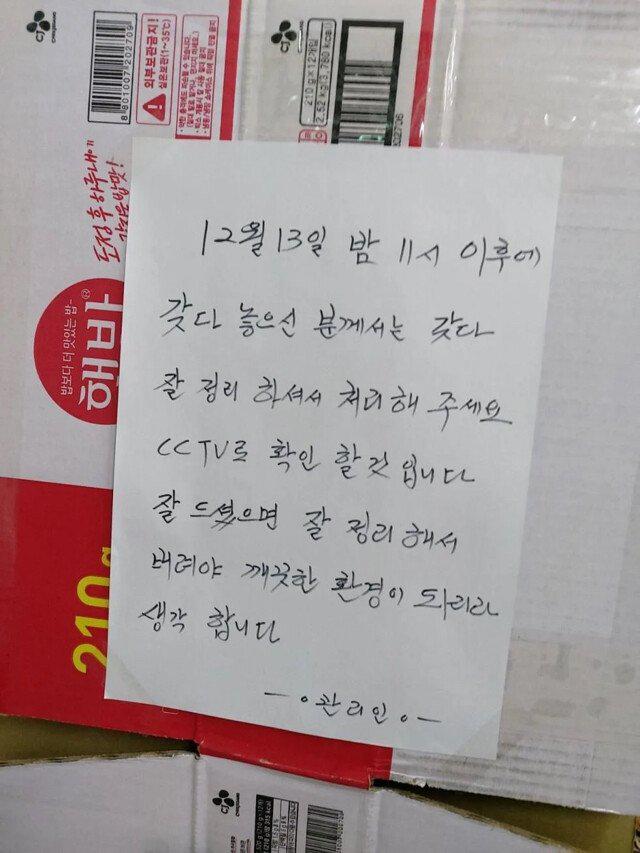 CJ
8801007202705
외부보관금지!
실온보관(1~35℃)
210 gX12개입
2.52 kg(3,780 kcal)
도정 후 하루내에
햇반
밥보다 더 맛있는 밥
210g
12월 13일 밤 11시 이후에
갖다 놓으신 분께서는 갖다
잘 정리 하셔서 처리해 주세요
CCTV로 확인 할것 입니다
잘 드셨으면 잘 정리해서
버려야 깨끗한 환경이 되리라
생각 합니다
관리인
CJ